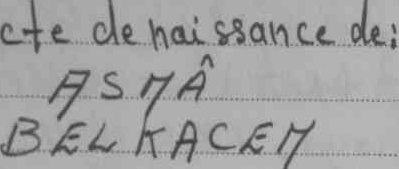 cte de naissance de:
ASMÂ
BELKACEM